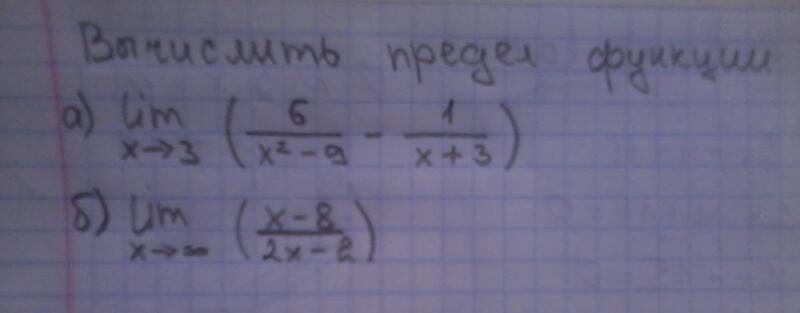 Вычислить предел функции
а) lim x→3 (6/(x²-9) - 1/(x+3))
б) lim x→∞ ((x-8)/(2x-2))